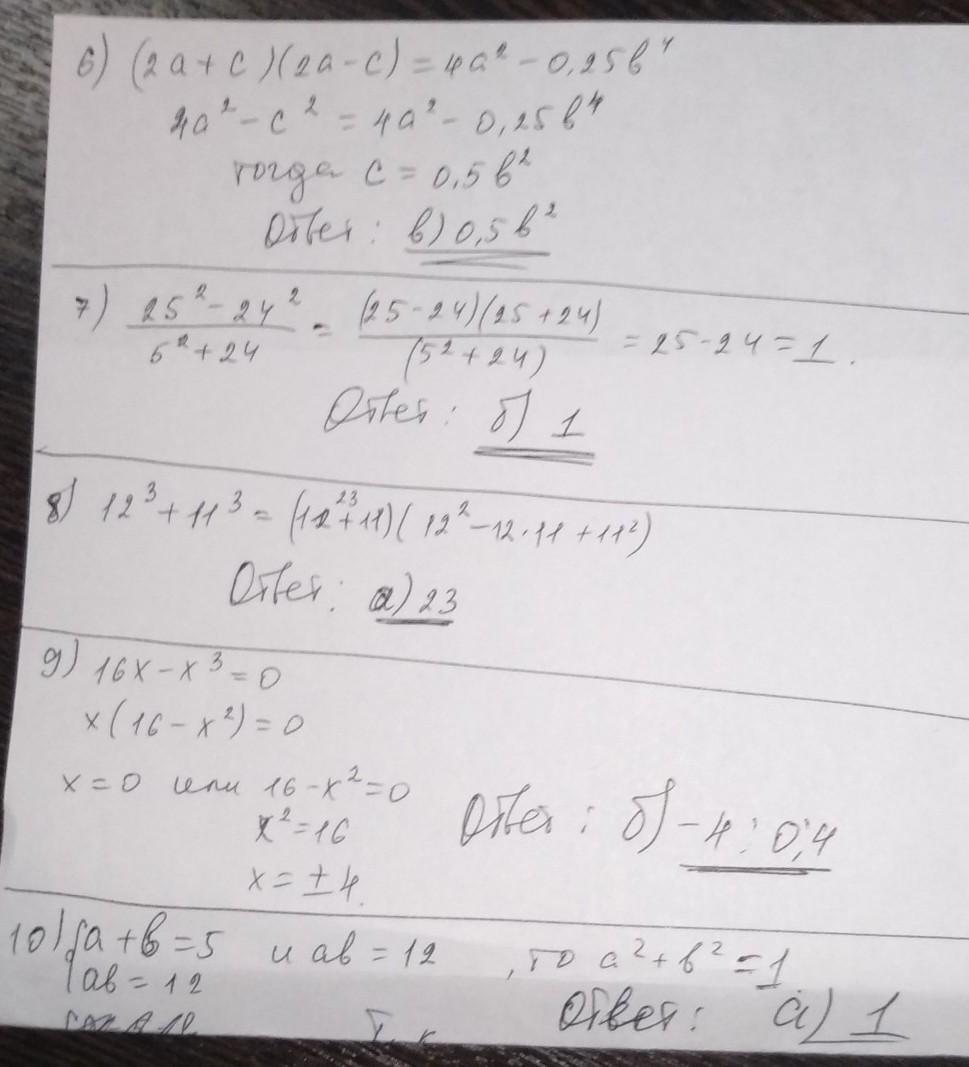 6) (2a+c)(2a-c) = 4a² - 0,25b⁴
4a² - c² = 4a² - 0,25b⁴
тогда c = 0,5b²
Ответ: в) 0,5b²
7) (25² - 24²)/(5² + 24) = ((25-24)(25+24))/((5² + 24)) = 25-24 = 1.
Ответ: б) 1
8) 12³ + 11³ = (12+11)(12² - 12·11 + 11²)
23
Ответ: а) 23
9) 16x - x³ = 0
x(16 - x²) = 0
x = 0 или 16 - x² = 0
x² = 16
x = ±4.
Ответ: б) -4; 0; 4
10) { a + b = 5 и ab = 12, то a² + b² = 1
ab = 12
Ответ: а) 1